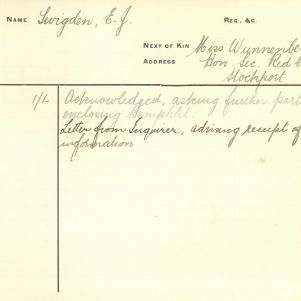 NAME Swigden, E. J.
REG. &C.
NEXT OF KIN Miss Wunnenbe
ADDRESS Hon. Sec. Red C
Stockport
1/L Acknowledged, asking further part
enclosing pamphlet.
Letter from Inquirer, advising receipt of
information